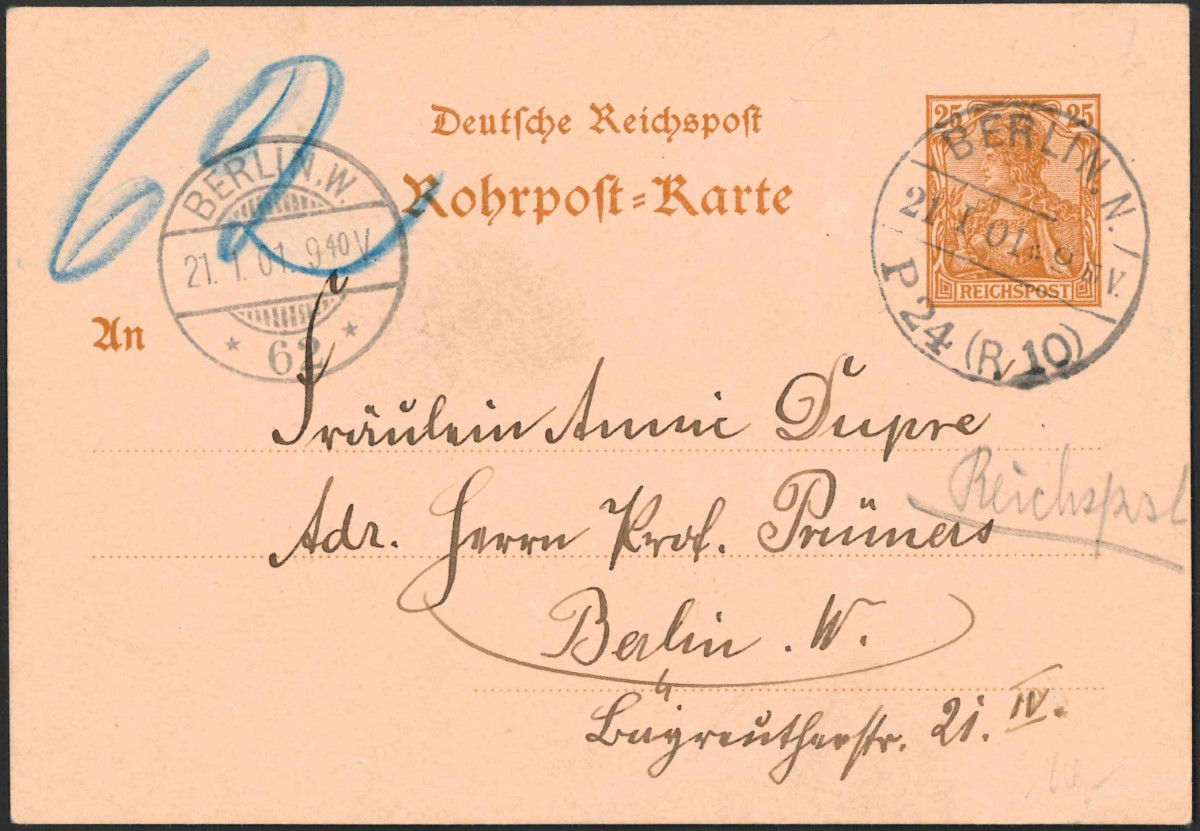 62
Deutsche Reichspost
Rohrpost=Karte
25 25
REICHSPOST
BERLIN, N.
21. 1. 01
P 24 (R. 10)
BERLIN, W.
21. 1. 01. 9 40 V.
* 62 *
An
Fräulein Annie Dupre
Adr. Herrn Prof. Prümers
Reichspost
Berlin. W.
Bayreutherstr. 21. IV.